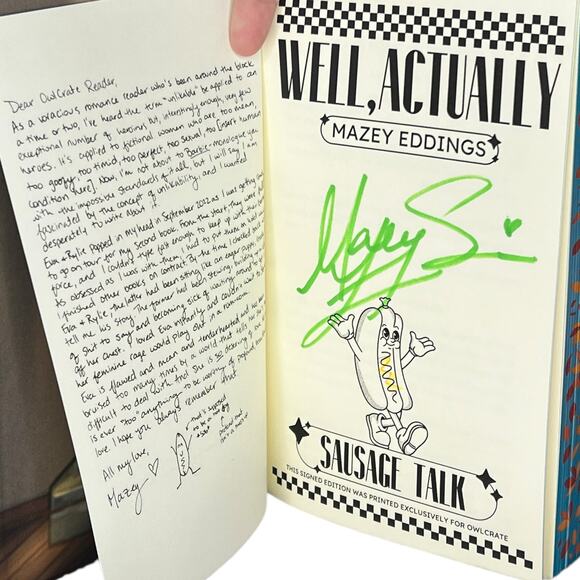 Dear OwlCrate Reader,
As a voracious romance reader who's been around the block
a time or two, I've heard the term "unlikable" be applied to an
exceptional number of heroines, but, interestingly enough, very few
heroes. It's applied to fictional women who are too mean,
too goofy, too timid, too perfect, too sexual too [insert human
condition here]. Now, I'm not about to Barbie-monologue you
with the impossible standards of it all, but I will say I am
fascinated by the concept of unlikability and I wanted
desperately to write about it.
Eva & Rylie popped in my head in September 2022 as I was getting
to go on tour for my second book. From the start, they were
force, and I couldn't type fast enough to keep up with them.
As obsessed as I was with them, I had to put them on hold
I finished other books on contract. By the time I circled back
Eva & Rylie, the latter had been sitting like an eager puppy
tell me his story. The former had been stewing, building
of shit to say and becoming sick of waiting around to
off her chest. I loved Eva instantly and couldn't wait to
her feminine rage would play out in a romcom.
Eva is flawed and mean and tenderhearted and
bruised too many times by a world that tells her
difficult to deal with. And she is so deserving of love
is ever "too" anything to be worthy of profound
love. I hope you always remember that.
All my love,
Mazey
that is supposed
to be a hot dog
WELL, ACTUALLY
MAZEY EDDINGS
Mazey
SAUSAGE TALK
THIS SIGNED EDITION WAS PRINTED EXCLUSIVELY FOR OWLCRATE